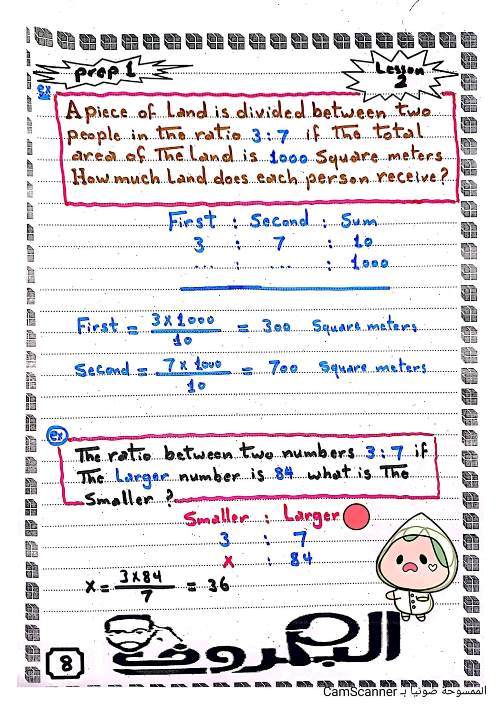 prep 1
Lesson 2
ex
A piece of Land is divided between two
people in the ratio 3:7 if The total
area of The Land is 1000 Square meters
How much Land does each person receive?
First : Second : Sum
3 : 7 : 10
... : ... : 1000
First = 3x1000/10 = 300 Square meters
Second = 7x1000/10 = 700 Square meters
ex
The ratio between two numbers 3:7 if
The Larger number is 84 what is The
Smaller ?
Smaller : Larger
3 : 7
x : 84
x = 3x84/7 = 36
البكروف
8
الممسوحة ضوئيا بـ CamScanner